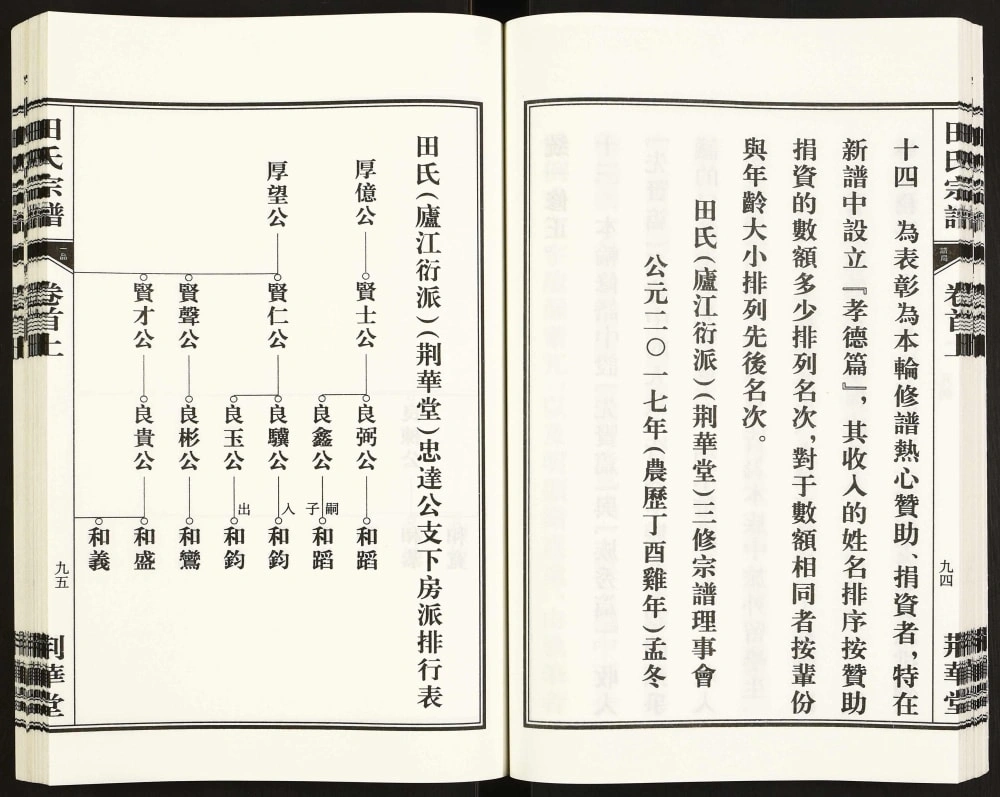 田氏宗譜
譜局
卷首上
九四
荆華堂
十四　為表彰為本輪修譜熱心贊助、捐資者，特在
新譜中設立『孝德篇』，其收入的姓名排序按贊助
捐資的數額多少排列名次，對于數額相同者按輩份
與年齡大小排列先後名次。
田氏（廬江衍派）（荆華堂）三修宗譜理事會
公元二〇一七年（農歷丁酉雞年）孟冬
田氏（廬江衍派）（荆華堂）忠達公支下房派排行表
厚億公
厚望公
賢士公
賢仁公
賢聲公
賢才公
良弼公
良鑫公
良驥公
良玉公
良彬公
良貴公
嗣子
入
出
和蹈
和蹈
和鈞
和鈞
和鸞
和盛
和義
田氏宗譜
卷首上
九五
荆華堂